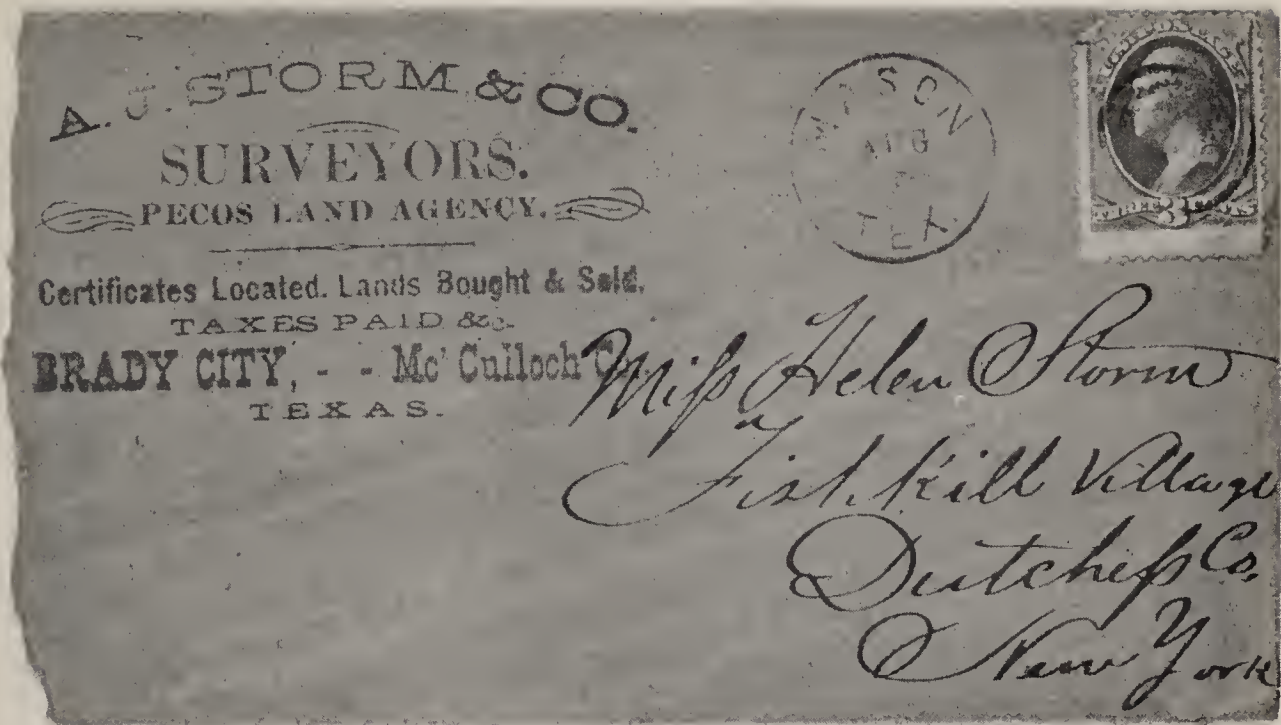 A. J. STORM & CO.
SURVEYORS.
PECOS LAND AGENCY.
Certificates Located. Lands Bought & Sold.
TAXES PAID &c.
BRADY CITY, - - Mc'Culloch Co.
TEXAS.
MASON
AUG
TEX
THREE 3 CENTS
Miſs Helen Storm
Fishkill Village
Dutcheſs Co.
New York